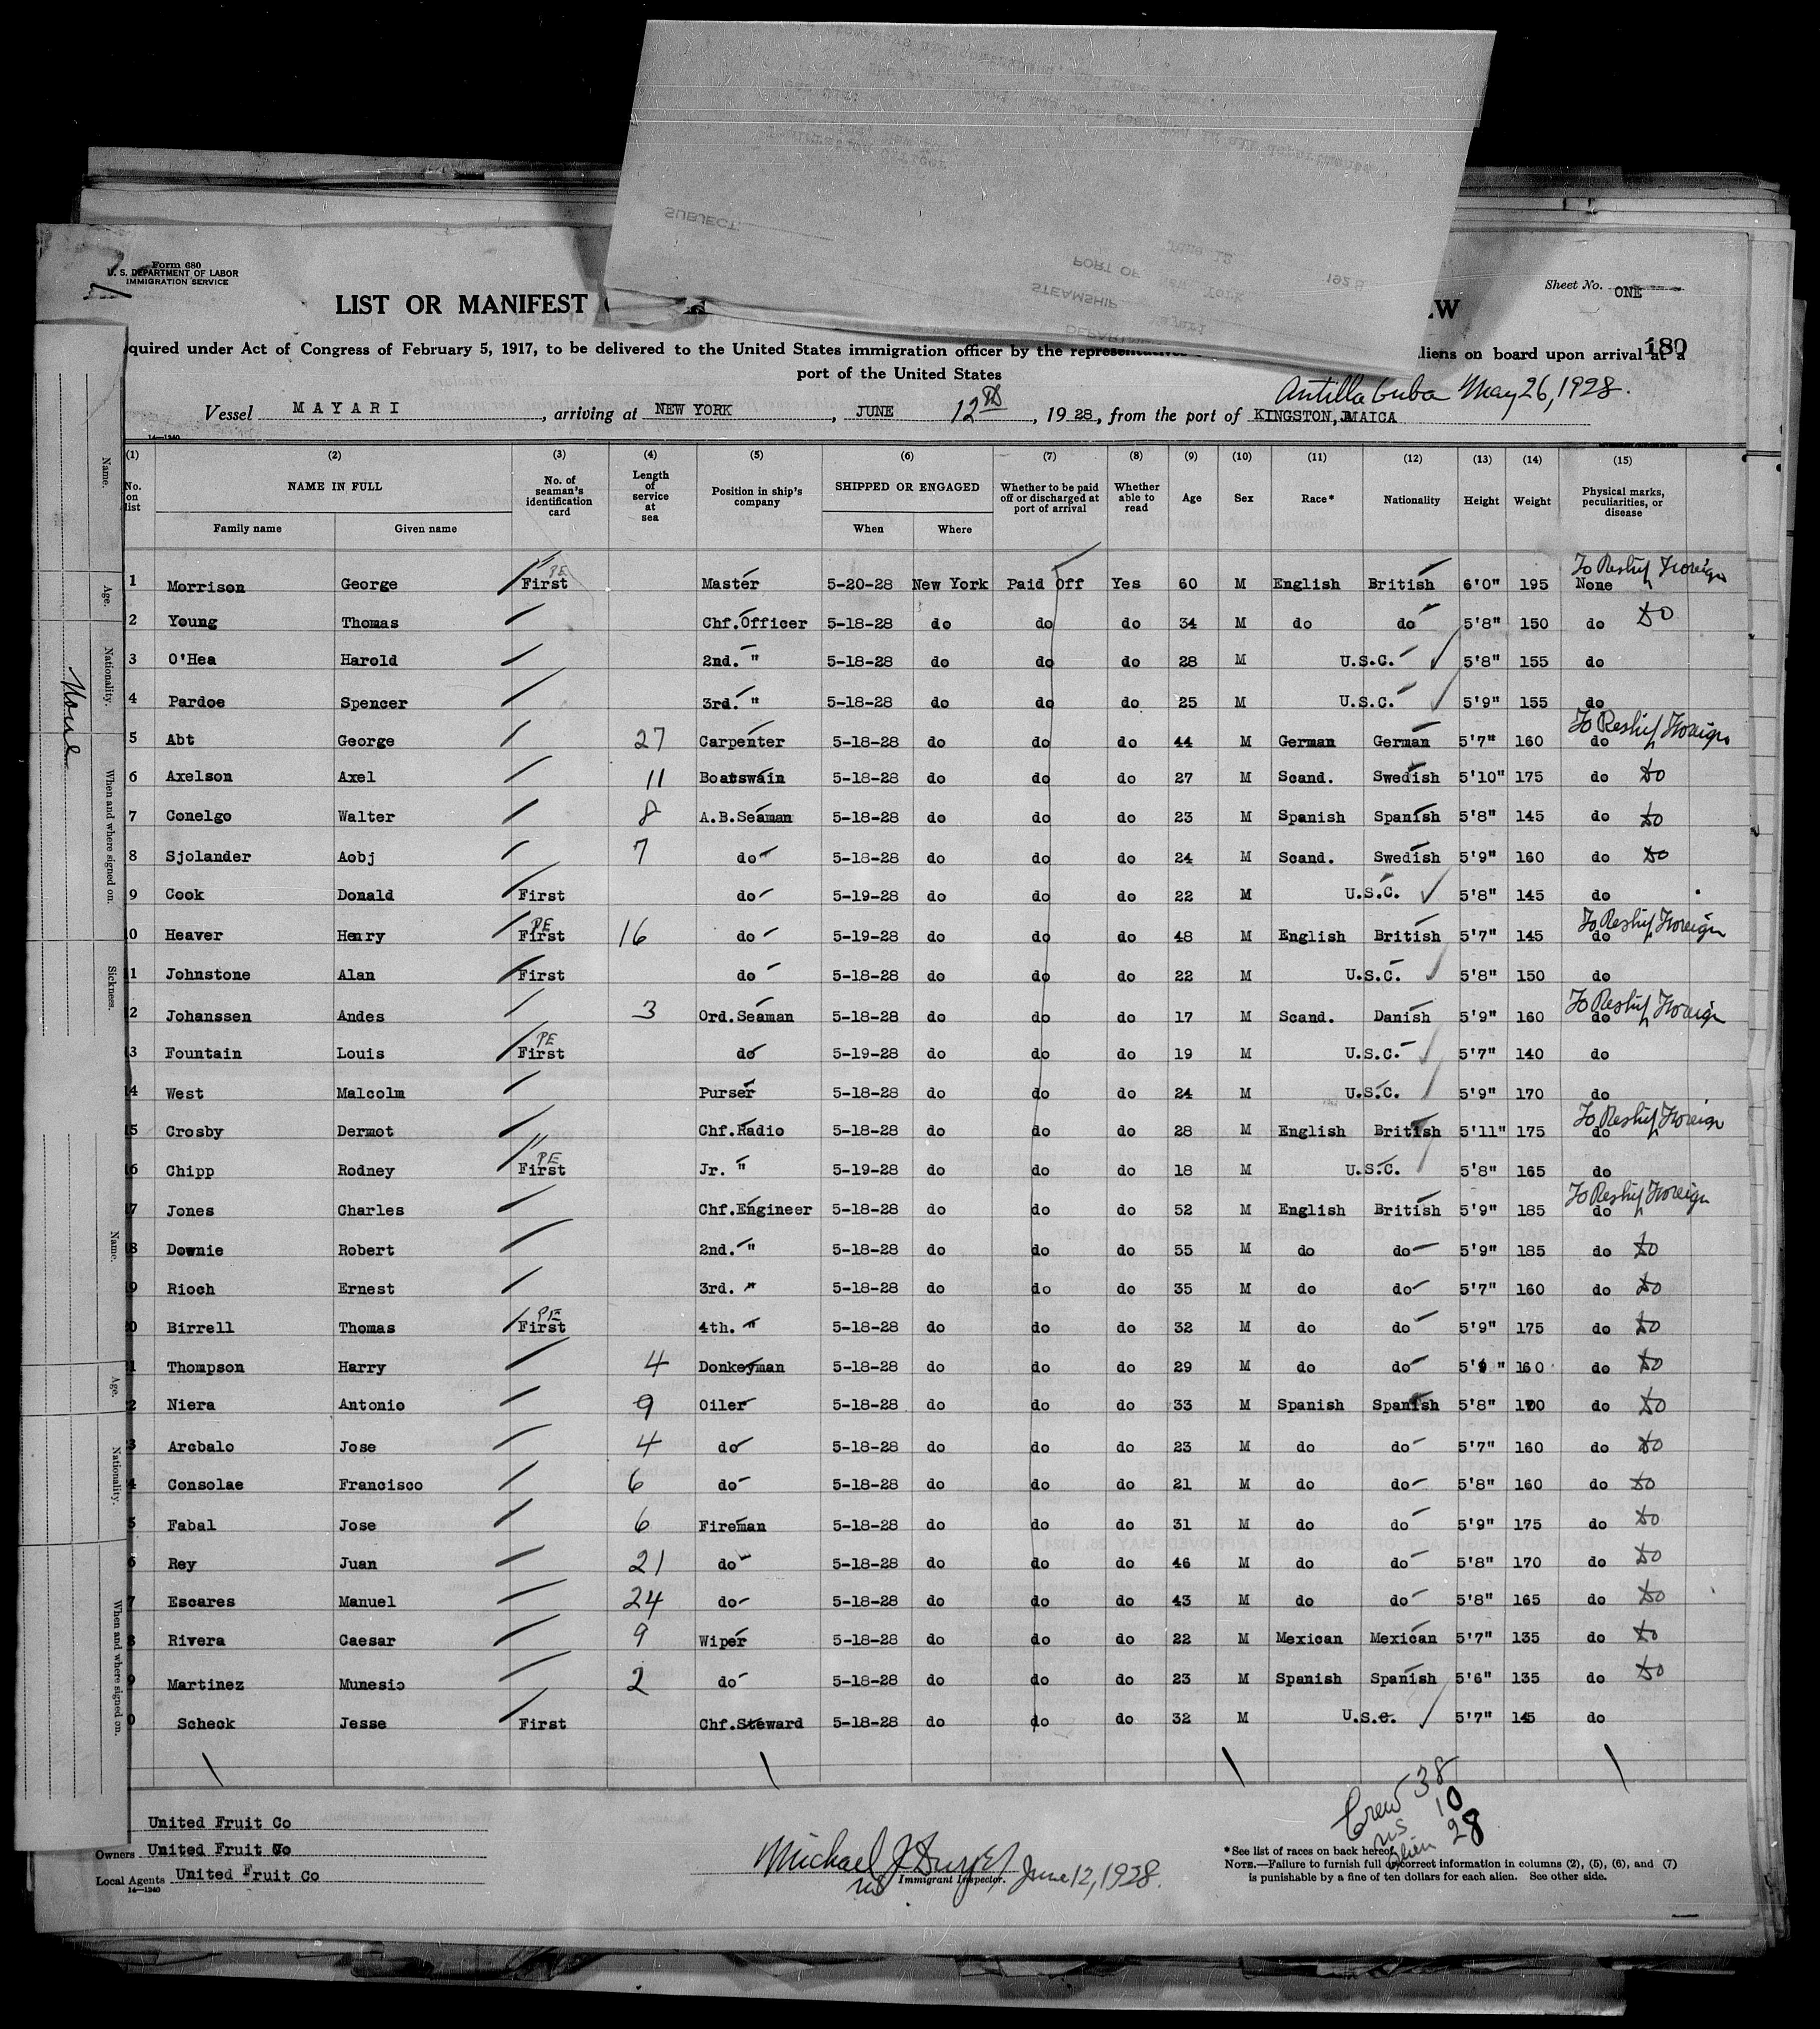 SUBJECT
June 12 192 8
PORT OF New York
STEAMSHIP Mayari
Form 680
U. S. DEPARTMENT OF LABOR
IMMIGRATION SERVICE
Sheet No. ONE
LIST OR MANIFEST
180
quired under Act of Congress of February 5, 1917, to be delivered to the United States immigration officer by the representatives liens on board upon arrival at a
port of the United States
Antilla Cuba May 26, 1928.
Vessel MAYARI, arriving at NEW YORK, JUNE 12th, 1928, from the port of KINGSTON, JAMAICA
14—1240
(1) (2) (3) (4) (5) (6) (7) (8) (9) (10) (11) (12) (13) (14) (15)
No. on list NAME IN FULL No. of seaman's identification card Length of service at sea Position in ship's company SHIPPED OR ENGAGED Whether to be paid off or discharged at port of arrival Whether able to read Age Sex Race* Nationality Height Weight Physical marks, peculiarities, or disease
Family name Given name When Where
1 Morrison George First PE Master 5-20-28 New York Paid Off Yes 60 M English British 6'0" 195 None To Reship Foreign
2 Young Thomas Chf.Officer 5-18-28 do do do 34 M do do 5'8" 150 do Do
3 O'Hea Harold 2nd. " 5-18-28 do do do 28 M U.S.C. 5'8" 155 do
4 Pardoe Spencer 3rd. " 5-18-28 do do do 25 M U.S.C. 5'9" 155 do
5 Abt George 27 Carpenter 5-18-28 do do do 44 M German German 5'7" 160 do To Reship Foreign
6 Axelson Axel 11 Boatswain 5-18-28 do do do 27 M Scand. Swedish 5'10" 175 do Do
7 Conelgo Walter 8 A.B.Seaman 5-18-28 do do do 23 M Spanish Spanish 5'8" 145 do Do
8 Sjolander Aobj 7 do 5-18-28 do do do 24 M Scand. Swedish 5'9" 160 do Do
9 Cook Donald First do 5-19-28 do do do 22 M U.S.C. 5'8" 145 do
0 Heaver Henry First PE 16 do 5-19-28 do do do 48 M English British 5'7" 145 do To Reship Foreign
1 Johnstone Alan First do 5-18-28 do do do 22 M U.S.C. 5'8" 150 do
2 Johanssen Andes 3 Ord.Seaman 5-18-28 do do do 17 M Scand. Danish 5'9" 160 do To Reship Foreign
3 Fountain Louis First PE do 5-19-28 do do do 19 M U.S.C. 5'7" 140 do
4 West Malcolm Purser 5-18-28 do do do 24 M U.S.C. 5'9" 170 do
5 Crosby Dermot Chf.Radio 5-18-28 do do do 28 M English British 5'11" 175 do To Reship Foreign
6 Chipp Rodney First PE Jr. " 5-19-28 do do do 18 M U.S.C. 5'8" 165 do
7 Jones Charles Chf.Engineer 5-18-28 do do do 52 M English British 5'9" 185 do To Reship Foreign
8 Downie Robert 2nd. " 5-18-28 do do do 55 M do do 5'9" 185 do Do
9 Rioch Ernest 3rd. " 5-18-28 do do do 35 M do do 5'7" 160 do Do
0 Birrell Thomas First PE 4th. " 5-18-28 do do do 32 M do do 5'9" 175 do Do
1 Thompson Harry 4 Donkeyman 5-18-28 do do do 29 M do do 160 do Do
2 Niera Antonio 9 Oiler 5-18-28 do do do 33 M Spanish Spanish 5'8" 170 do Do
3 Arcbalo Jose 4 do 5-18-28 do do do 23 M do do 5'7" 160 do Do
4 Consolae Francisco 6 do 5-18-28 do do do 21 M do do 5'8" 160 do Do
5 Fabal Jose 6 Fireman 5-18-28 do do do 31 M do do 5'9" 175 do Do
6 Rey Juan 21 do 5-18-28 do do do 46 M do do 5'8" 170 do Do
7 Escares Manuel 24 do 5-18-28 do do do 43 M do do 5'8" 165 do Do
8 Rivera Caesar 9 Wiper 5-18-28 do do do 22 M Mexican Mexican 5'7" 135 do Do
9 Martinez Munesio 2 do 5-18-28 do do do 23 M Spanish Spanish 5'6" 135 do Do
0 Scheck Jesse First Chf.Steward 5-18-28 do do do 32 M U.S.C. 5'7" 145 do
Crew 38
US 10
Alien 28
United Fruit Co
Owners United Fruit Co
Local Agents United Fruit Co
14—1240
Michael J.
Immigrant Inspector. June 12, 1928.
* See list of races on back hereof.
NOTE.—Failure to furnish full or correct information in columns (2), (5), (6), and (7)
is punishable by a fine of ten dollars for each alien. See other side.
Name.
Age.
Nationality.
When and where signed on.
Sickness.
None
Name.
Age.
Nationality.
When and where signed on.